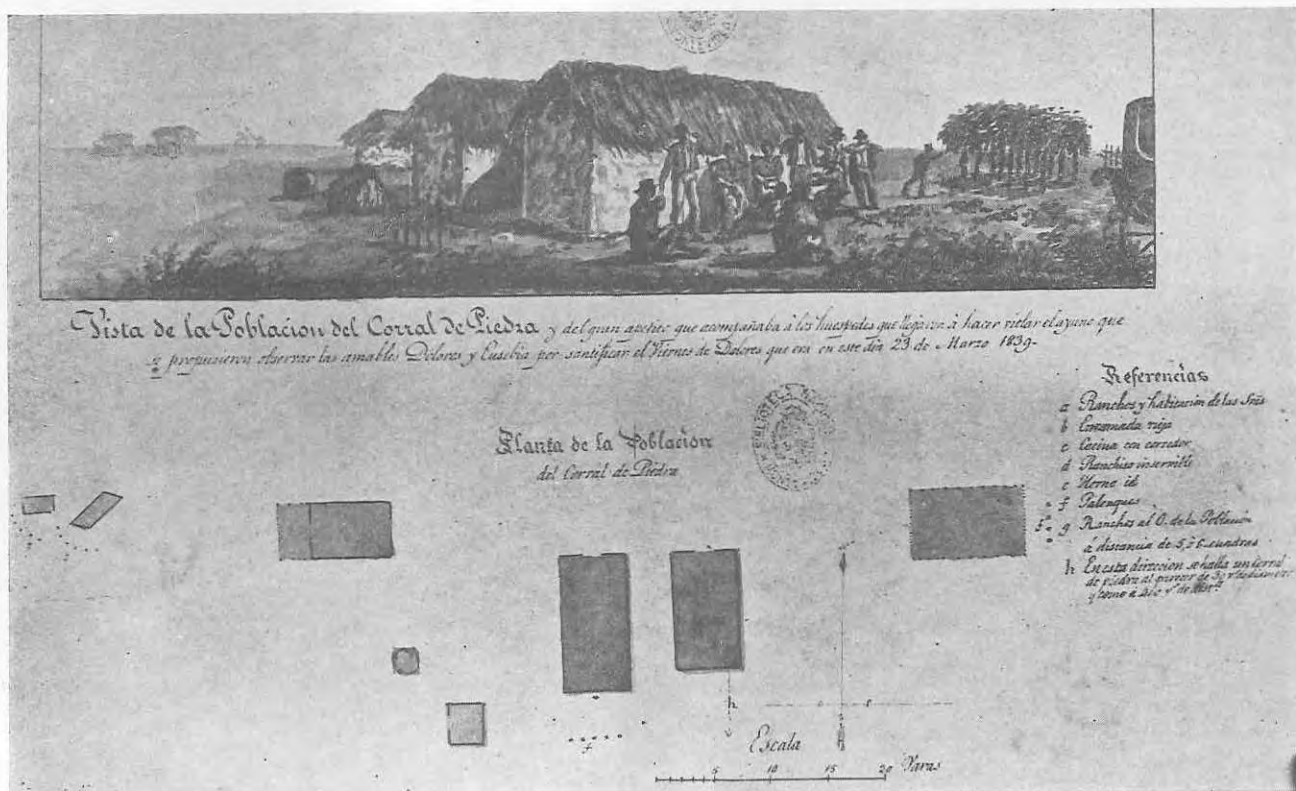 Vista de la Poblacion del Corral de Piedra y del gran apetito que acompañaba à los huespedes que llegaron à hacer violar el ayuno que
propusieron observar las amables Dolores y Eusebia por santificar el Viernes de Dolores que era en este dia 23 de Marzo 1839.
Planta de la Poblacion
del Corral de Piedra
BIBLIOTECA
Referencias
a Ranchos y habitacion de las
b Enramada vieja
c Cocina con corredor
d Ranchito inservible
e Horno id
f Palenques
g Ranchos al O. de la Poblacion
à distancia de 5, ò 6 cuadras
h En esta direccion se halla un corral
de piedra al parecer de 50
y como à de
f
h
f
Escala
5 10 15 20 Varas